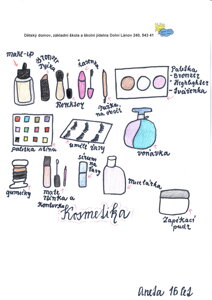 Dětský domov, základní škola a školní jídelna Dolní Lánov 240, 543 41
make-up
Bronzer
řasenky
Paletka
- Bronzer
- Highlighter
- tvářenka
Korektory
Tužka
na obočí
paletka stínů
umělé řasy
voňavka
gumičky
serum
na řasy
Micelárka
Zapékací
pudr
Kosmetika
Aneta 16 let